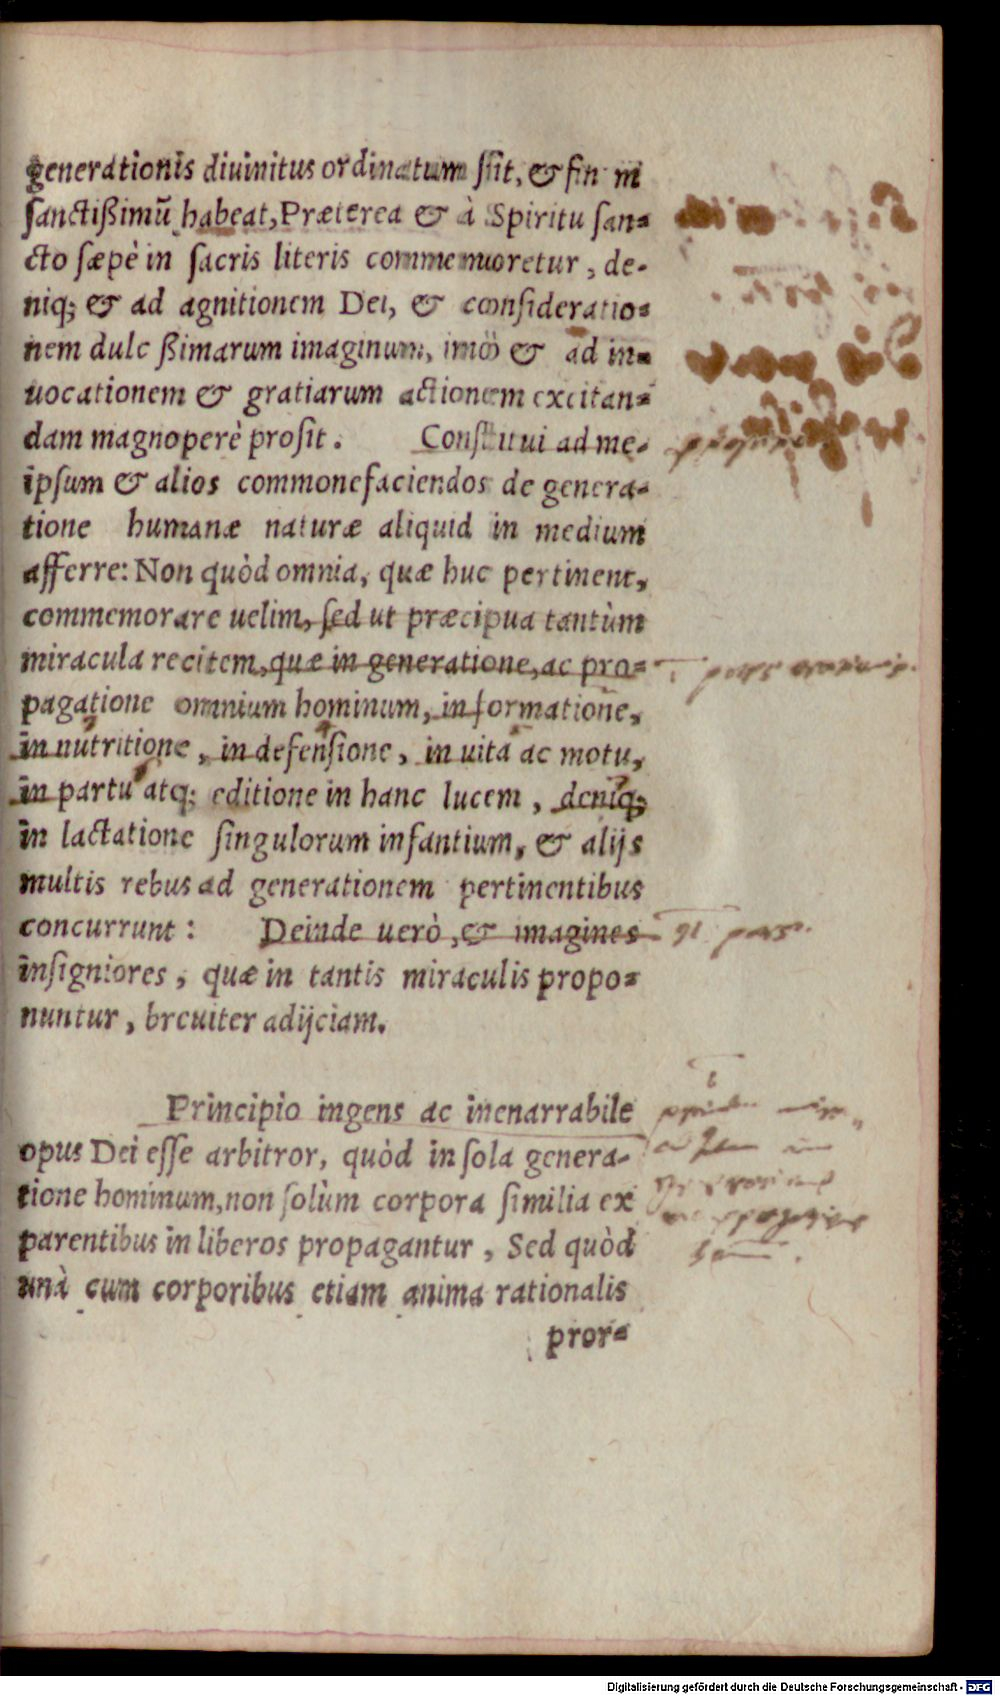 generationis diuinitus ordinatum sit, & fin m
sanctißimū habeat, Præterea & à Spiritu san-
cto sæpè in sacris literis commemoretur, de-
niq; & ad agnitionem Dei, & consideratio-
nem dulc ßimarum imaginum, imò & ad in-
uocationem & gratiarum actionem excitan-
dam magnoperè prosit. Constitui ad me-
ipsum & alios commonefaciendos de genera-
tione humanæ naturæ aliquid in medium
afferre: Non quòd omnia, quæ huc pertinent,
commemorare uelim, sed ut præcipua tantùm
miracula recitem, quæ in generatione, ac pro-
pagatione omnium hominum, in formatione,
in nutritione, in defensione, in uita ac motu,
in partu atq; editione in hanc lucem, deniq;
in lactatione singulorum infantium, & alijs
multis rebus ad generationem pertinentibus
concurrunt: Deinde uerò, & imagines
insigniores, quæ in tantis miraculis propo-
nuntur, breuiter adijciam.
Principio ingens ac inenarrabile
opus Dei esse arbitror, quòd in sola genera-
tione hominum, non solùm corpora similia ex
parentibus in liberos propagantur, Sed quòd
unà cum corporibus etiam anima rationalis
pror-
Digitalisierung gefördert durch die Deutsche Forschungsgemeinschaft - DFG